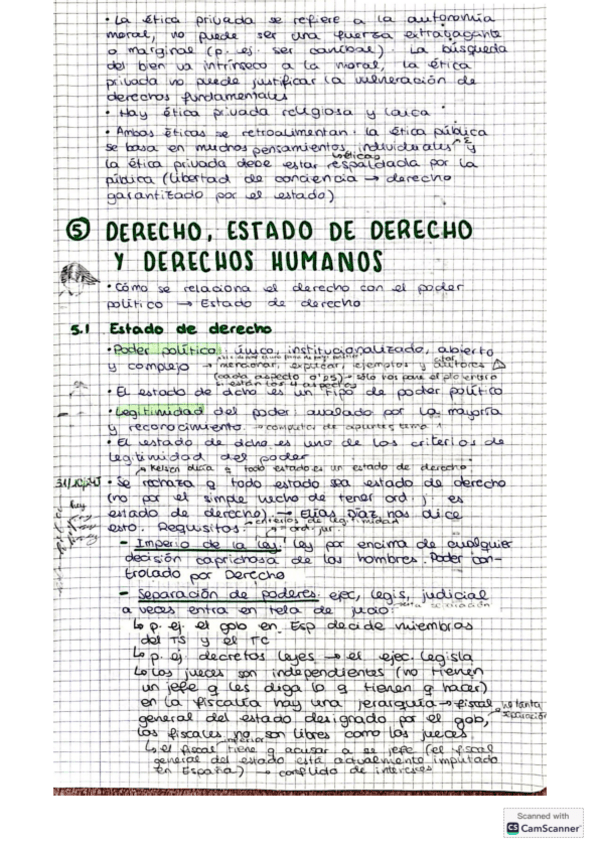 · La ética privada se refiere a la autonomía
moral, no puede ser una fuerza extravagante
o marginal (p. ej. ser caníbal). La búsqueda
del bien va intrínseco a la moral, la ética
privada no puede justificar la vulneración de
derechos fundamentales
· Hay ética privada religiosa y laica
· Ambas éticas se retroalimentan: la ética pública
se basa en muchos pensamientos individuales y
éticas
la ética privada debe estar respaldada por la
pública (libertad de conciencia → derecho
garantizado por el estado)
⑤ DERECHO, ESTADO DE DERECHO
Y DERECHOS HUMANOS
· Cómo se relaciona el derecho con el poder
político → Estado de derecho
5.1 Estado de derecho
· Poder político: único, institucionalizado, abierto
y complejo → mencionar, explicar, ejemplos y autores
citar
(cada aspecto 0'25) → sólo nos pone el plo entero
si están los 4 aspectos
· El estado de dcho es un tipo de poder político
· Legitimidad del poder: avalado por la mayoría
y reconocimiento. → completar de apuntes tema 1
· El estado de dcho es uno de los criterios de
legitimidad del poder
↗ Kelsen decía q todo estado es un estado de derecho
31/10/25 · Se rechaza q todo estado sea estado de derecho
hay
(no por el simple hecho de tener ord. j. es
estado de derecho) → Elías Díaz nos dice
esto. Requisitos:
→ criterios de legitimidad
ord. jur.
- Imperio de la ley: ley por encima de cualquier
decisión caprichosa de los hombres. Poder con-
trolado por Derecho
- Separación de poderes: ejec, legis, judicial
a veces entra en tela de juicio: esta separación
↳ p. ej. el gob en Esp decide miembros
del TS y el TC
↳ p. ej. decretos leyes → el ejec. legisla
↳ Los jueces son independientes (no tienen
un jefe q les diga lo q tienen q hacer)
en la fiscalía hay una jerarquía → fiscal
no tanta
separación
general del estado designado por el gob,
los fiscales no son libres como los jueces.
inferior
↳ el fiscal tiene q acusar a es jefe (el fiscal
general del estado está actualmente imputado
en España) → conflicto de intereses
Scanned with
CS CamScanner